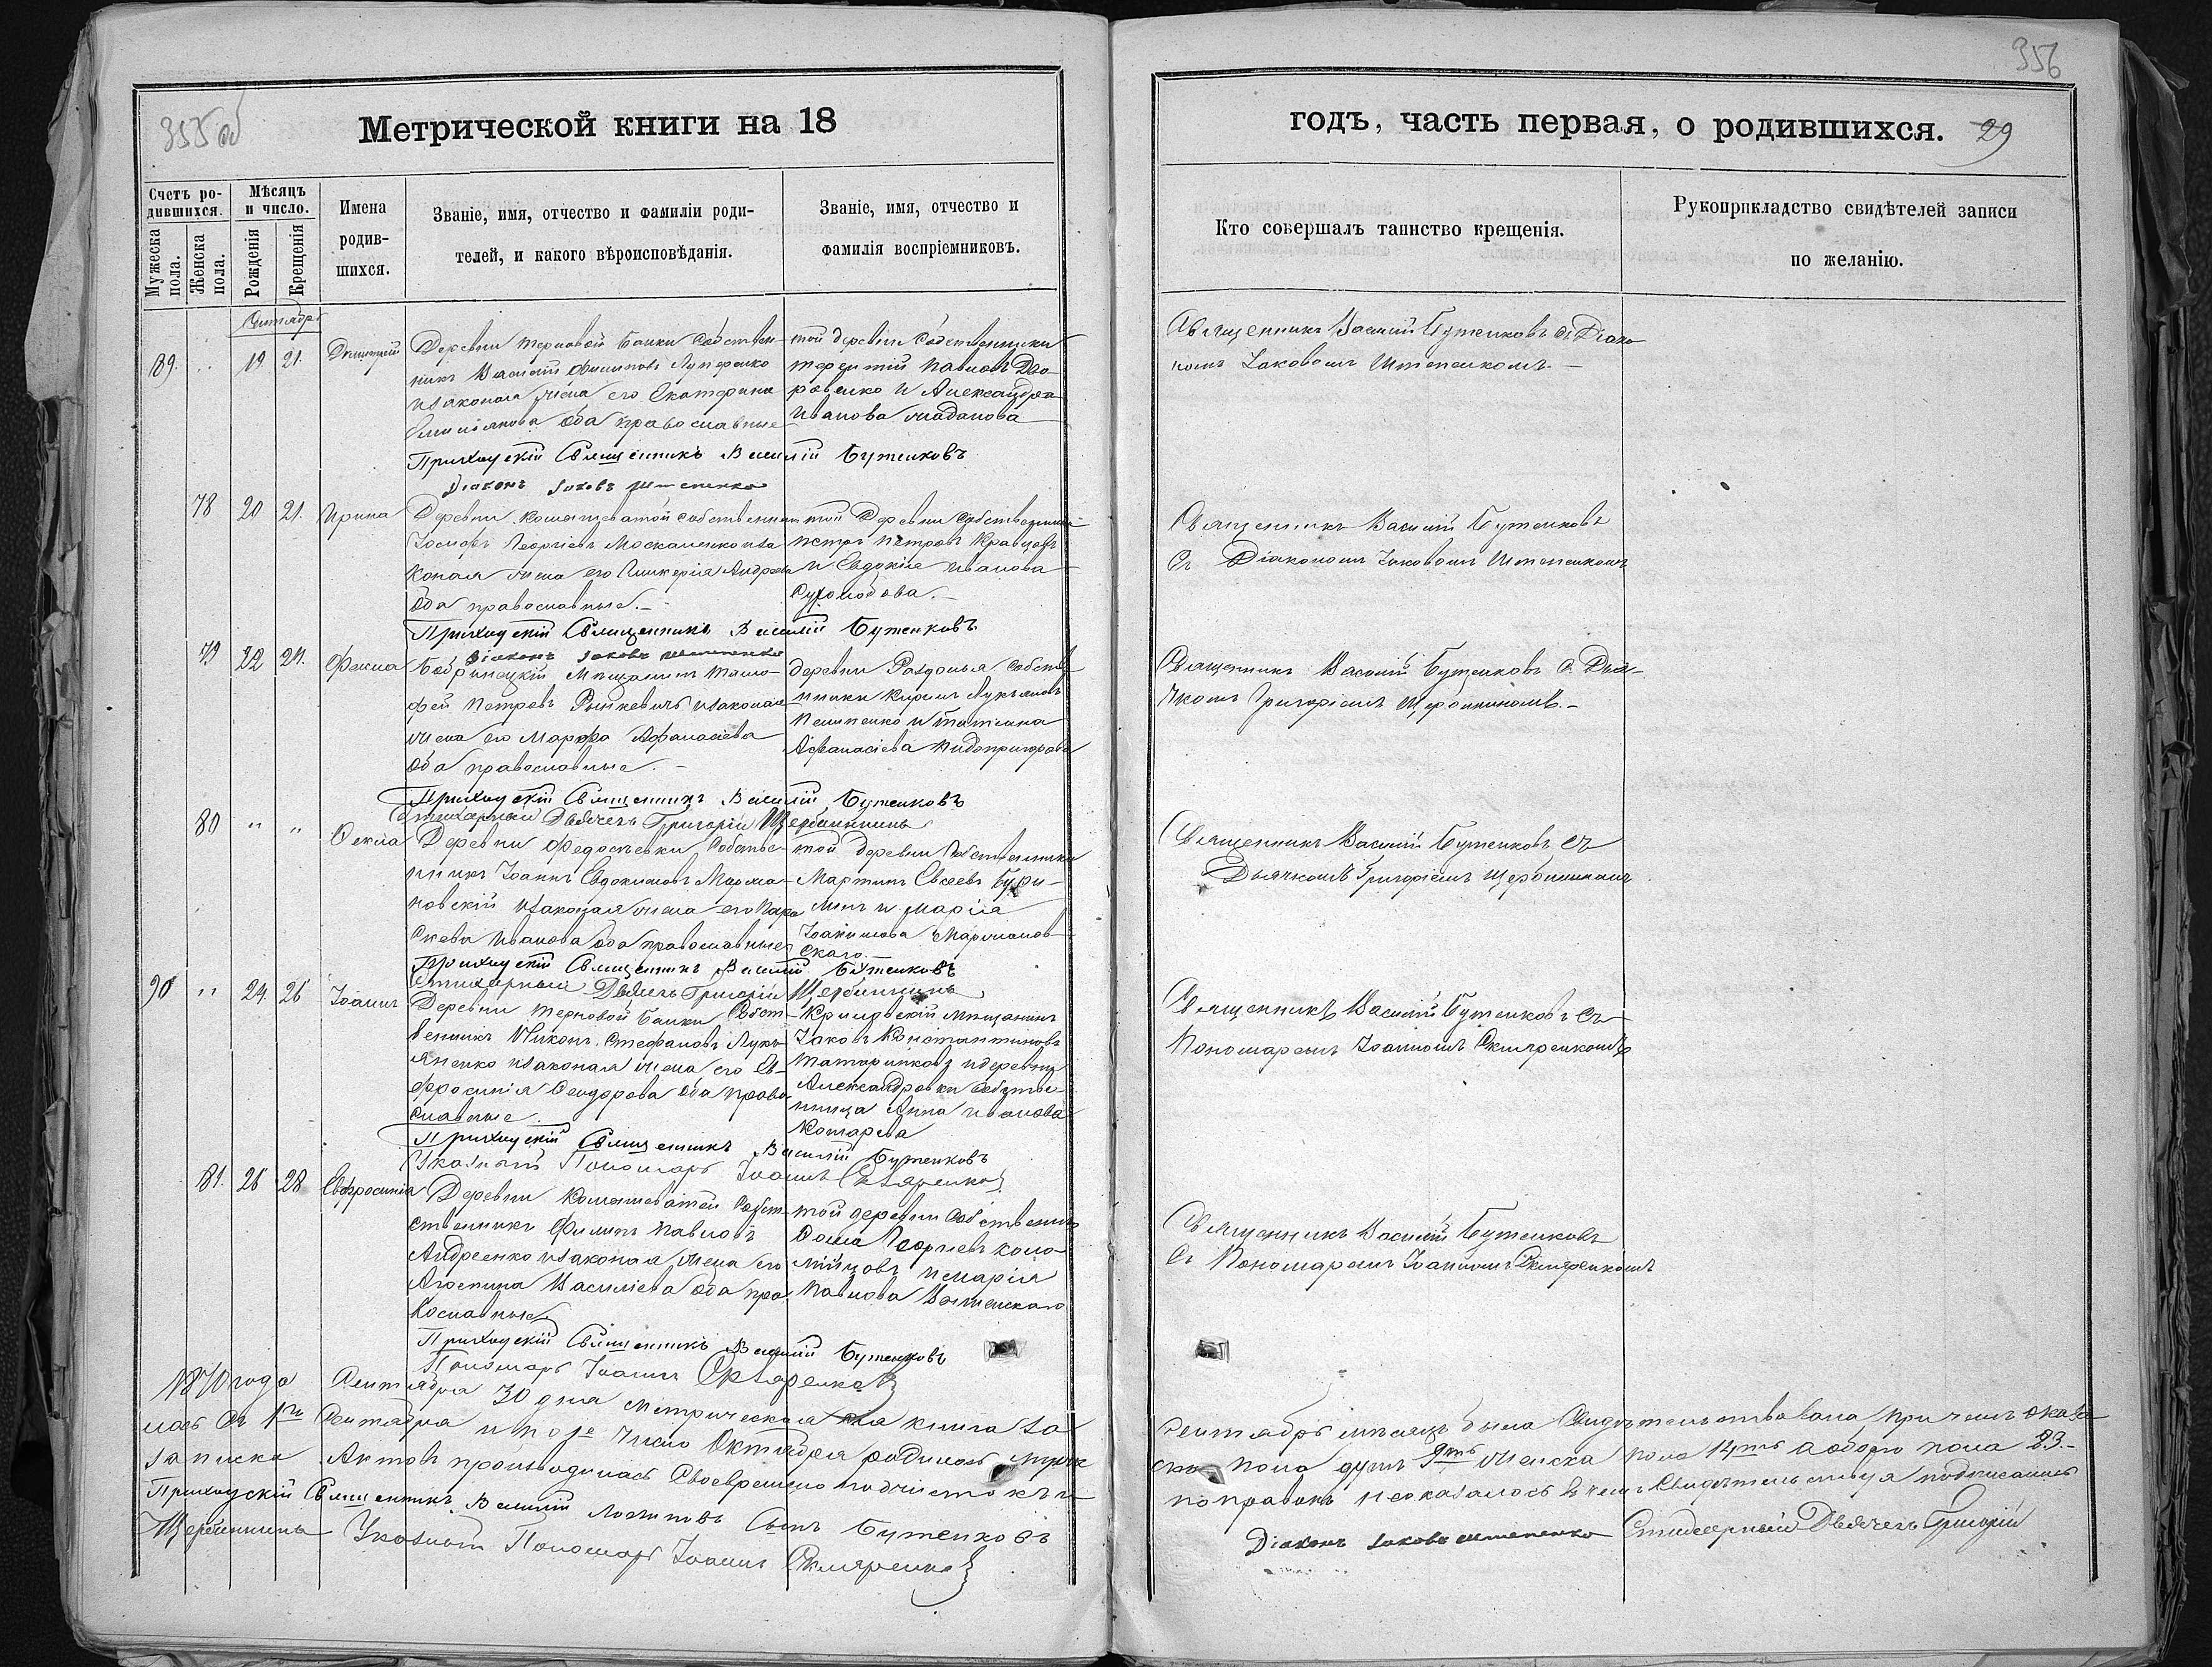 355 об
Метрической книги на 18
Счетъ ро-
дившихся.
Мужеска
пола.
Женска
пола.
Мѣсяцъ
и число.
Рожденія
Крещенія
Имена
родив-
шихся.
Званіе, имя, отчество и фамиліи роди-
телей, и какого вѣроисповѣданія.
Званіе, имя, отчество и
фамилія воспріемниковъ.
Сентябрь
89. 19 21. Димитрій
Деревни Терновой Балки собствен-
никъ Василій Филиповъ
изаконая жена его Екатерина
оба православные
той деревни собственники
Терентій Павловъ Дво-
ровенко и Александра
Иванова
Приходскій Священникъ Василій Бутенковъ
Діаконъ Іаковъ Штепенко
78 20 21. Ирина
Деревни Компанцеватой собственникъ
Іосифъ Георгіевъ Москаленко иза
коная жена его Гликерія Андреева
оба православные.—
той деревни собственники
Петръ Петровъ Кравцовъ
и Евдокія Иванова
Приходскій Священникъ Василій Бутенковъ
Діаконъ Іаковъ Штепенко
79 22 24. Фекла
Бобринецкій мѣщанинъ Тимо-
фей Петровъ изаконая
жена его Марфа Афанасіева
оба православные.—
деревни Раздолья собств
нники Кирилъ Лукьяновъ
и Татіана
Афанасіева
Приходскій Священникъ Василій Бутенковъ
Стихарный Дьячекъ Григорій Щербининъ
80 " " Фекла
Деревни Федосѣевки собстве-
нникъ Іоаннъ Евдокимовъ Маржа-
новскій изаконая жена его Пара
скева Иванова оба православные
той деревни собственники
Мартинъ Евсеевъ
и Марія
Іоакимова Маржанов-
скаго.—
Приходскій Священникъ Василій Бутенковъ
Стихарный Дьячекъ Григорій Щербининъ
90 " 24. 26 Іоаннъ
Деревни Терновой Балки Собст-
венникъ Никонъ Стефановъ Лукь-
яненко изаконая жена его Ев-
фросинія Феодорова оба право-
славные.
Крыловскій мѣщанинъ
Іаковъ Константиновъ
Татаринковъ идеревни
Александровки собстве-
нница Анна Иванова
Котарева
Приходскій Священникъ Василій Бутенковъ
Указный Пономарь Іоаннъ Скляренко
81. 26 28 Евфросинія
Деревни Компанцеватой Собст-
ственникъ Филипъ Павловъ
Андреенко изаконая жена его
Агрепина Василіева оба пра-
вославные
той деревни собственникъ
Фома Георгіевъ Коло-
мійцовъ и Марія
Павлова
Приходскій Священникъ Василій Бутенковъ
Пономарь Іоаннъ Скляренко
1870 года Сентября 30 дня Метрическая сія книга за
лась съ 1го Сентября и по 1е число Октября родилось мужс
записка Актовъ производилась Своевременно подчистокъ и
Приходскій Священникъ Василій Логиновъ сынъ Бутенковъ
Щербининъ Указный Пономарь Іоаннъ Скляренко
356
годъ, часть первая, о родившихся. 29
Кто совершалъ таинство крещенія.
Рукоприкладство свидѣтелей записи
по желанію.
Священникъ Василій Бутенковъ съ Діако
номъ Іаковомъ Штепенкомъ.—
Священникъ Василій Бутенковъ
Съ Діакономъ Іаковомъ Штепенкомъ
Священникъ Василій Бутенковъ съ Дья-
чкомъ Григоріемъ Щербининомъ.—
Священникъ Василій Бутенковъ съ
Дьячкомъ Григоріемъ Щербининомъ
Священникъ Василій Бутенковъ съ
Пономаремъ Іоанномъ Скляренкомъ
Священникъ Василій Бутенковъ
Съ Пономаремъ Іоанномъ Скляренкомъ
Сентябрь мѣсяцъ была Свидѣтельствована причемъ оказа
ска пола душъ 9ть женска пола 14ть а обоего пола 23.—
поправокъ неоказалось вчемъ Свидѣтельствуя подписались
Діаконъ Іаковъ Штепенко Стихарный Дьячекъ Григорій